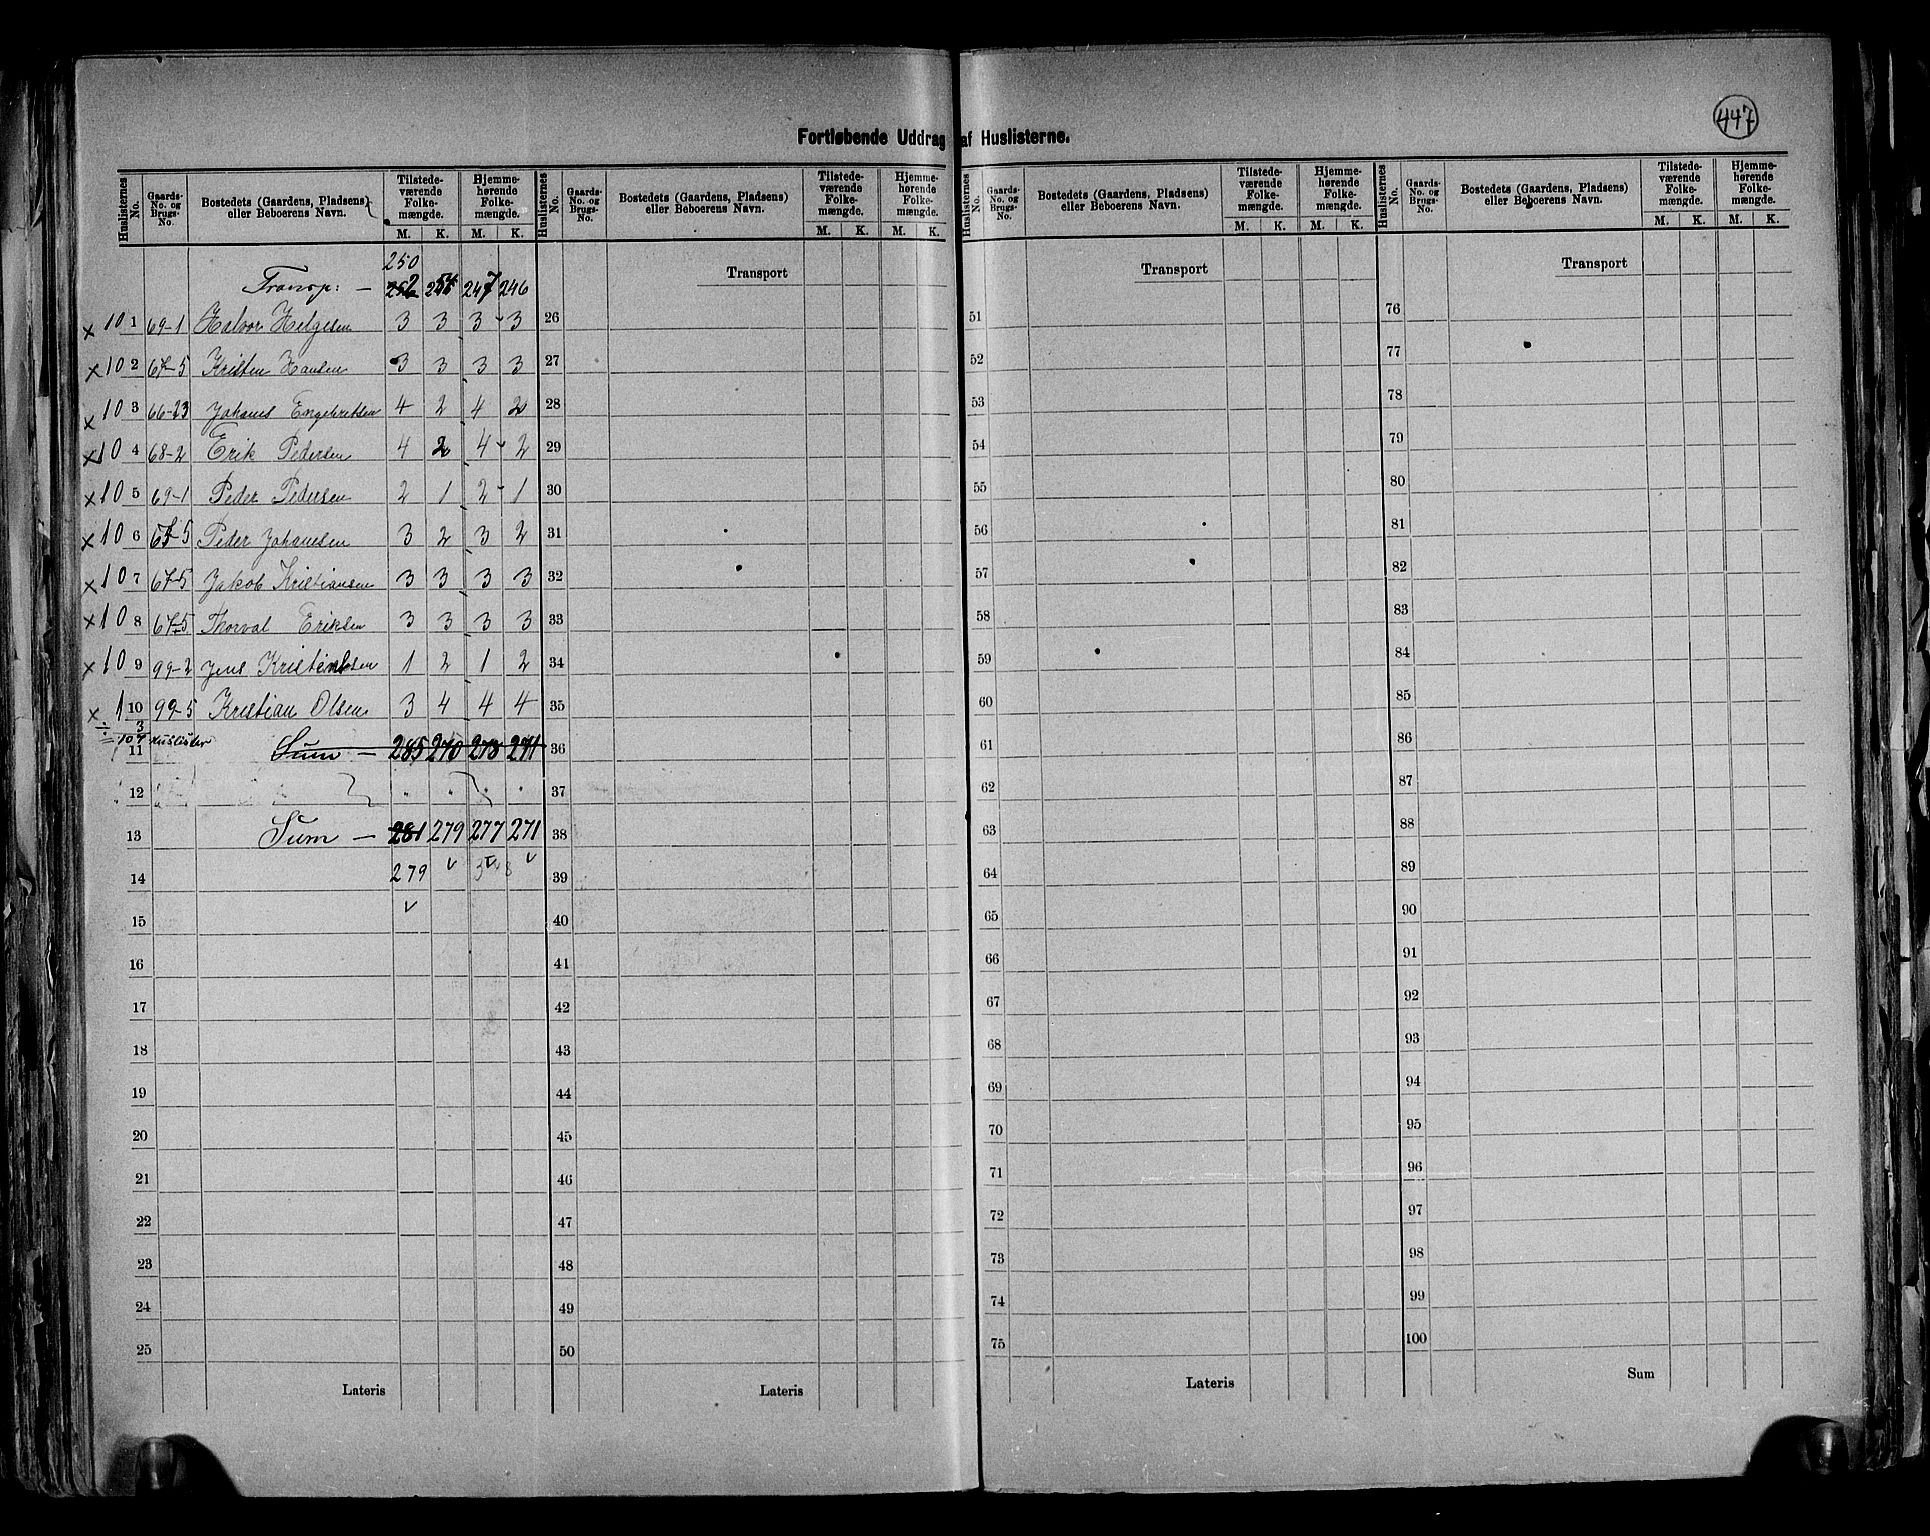 447
Fortløbende Uddrag af Huslisterne.
Huslisternes No. | Gaards-No. og Brugs-No. | Bostedets (Gaardens, Pladsens) eller Beboerens Navn. | Tilstedeværende Folkemængde. M. K. | Hjemmehørende Folkemængde. M. K.
Huslisternes No. | Gaards-No. og Brugs-No. | Bostedets (Gaardens, Pladsens) eller Beboerens Navn. | Tilstedeværende Folkemængde. M. K. | Hjemmehørende Folkemængde. M. K.
Huslisternes No. | Gaards-No. og Brugs-No. | Bostedets (Gaardens, Pladsens) eller Beboerens Navn. | Tilstedeværende Folkemængde. M. K. | Hjemmehørende Folkemængde. M. K.
Huslisternes No. | Gaards-No. og Brugs-No. | Bostedets (Gaardens, Pladsens) eller Beboerens Navn. | Tilstedeværende Folkemængde. M. K. | Hjemmehørende Folkemængde. M. K.
250
Transp: — 247 246
x 10 1 69-1 Halvor Helgesen 3 3 3 3
x 10 2 67-5 Kristen Hansen 3 3 3 3
x 10 3 66-23 Johanes Engebretsen 4 2 4 2
x 10 4 68-2 Erik Pedersen 4 2 4 2
x 10 5 69-1 Peder Pedersen 2 1 2 1
x 10 6 Peder Johanesen 3 2 3 2
x 10 7 67-5 Jakob Kristiansen 3 3 3 3
x 10 8 67-5 Thorval Eriksen 3 3 3 3
x 10 9 99-2 Jens 1 2 1 2
x 1 10 99-5 Kristian Olsen 3 4 4 4
3
= 107 Huslister
11 Sum — 285 270 278 271
12
13 Sum — 281 279 277 271
14 279
15
16
17
18
19
20
21
22
23
24
25
Lateris
Transport
26
27
28
29
30
31
32
33
34
35
36
37
38
39
40
41
42
43
44
45
46
47
48
49
50
Lateris
Transport
51
52
53
54
55
56
57
58
59
60
61
62
63
64
65
66
67
68
69
70
71
72
73
74
75
Lateris
Transport
76
77
78
79
80
81
82
83
84
85
86
87
88
89
90
91
92
93
94
95
96
97
98
99
100
Sum